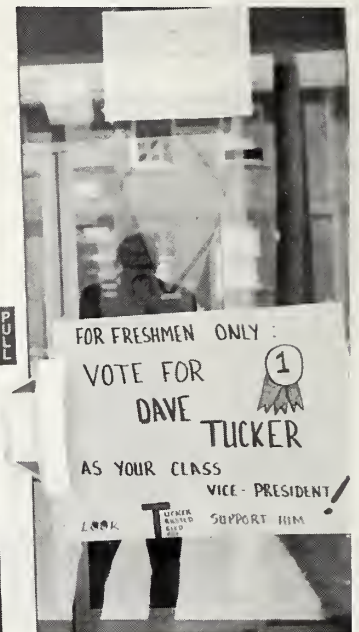 PULL
FOR FRESHMEN ONLY :
VOTE FOR
1
DAVE
TUCKER
AS YOUR CLASS
VICE-PRESIDENT!
LOOK
SUPPORT HIM